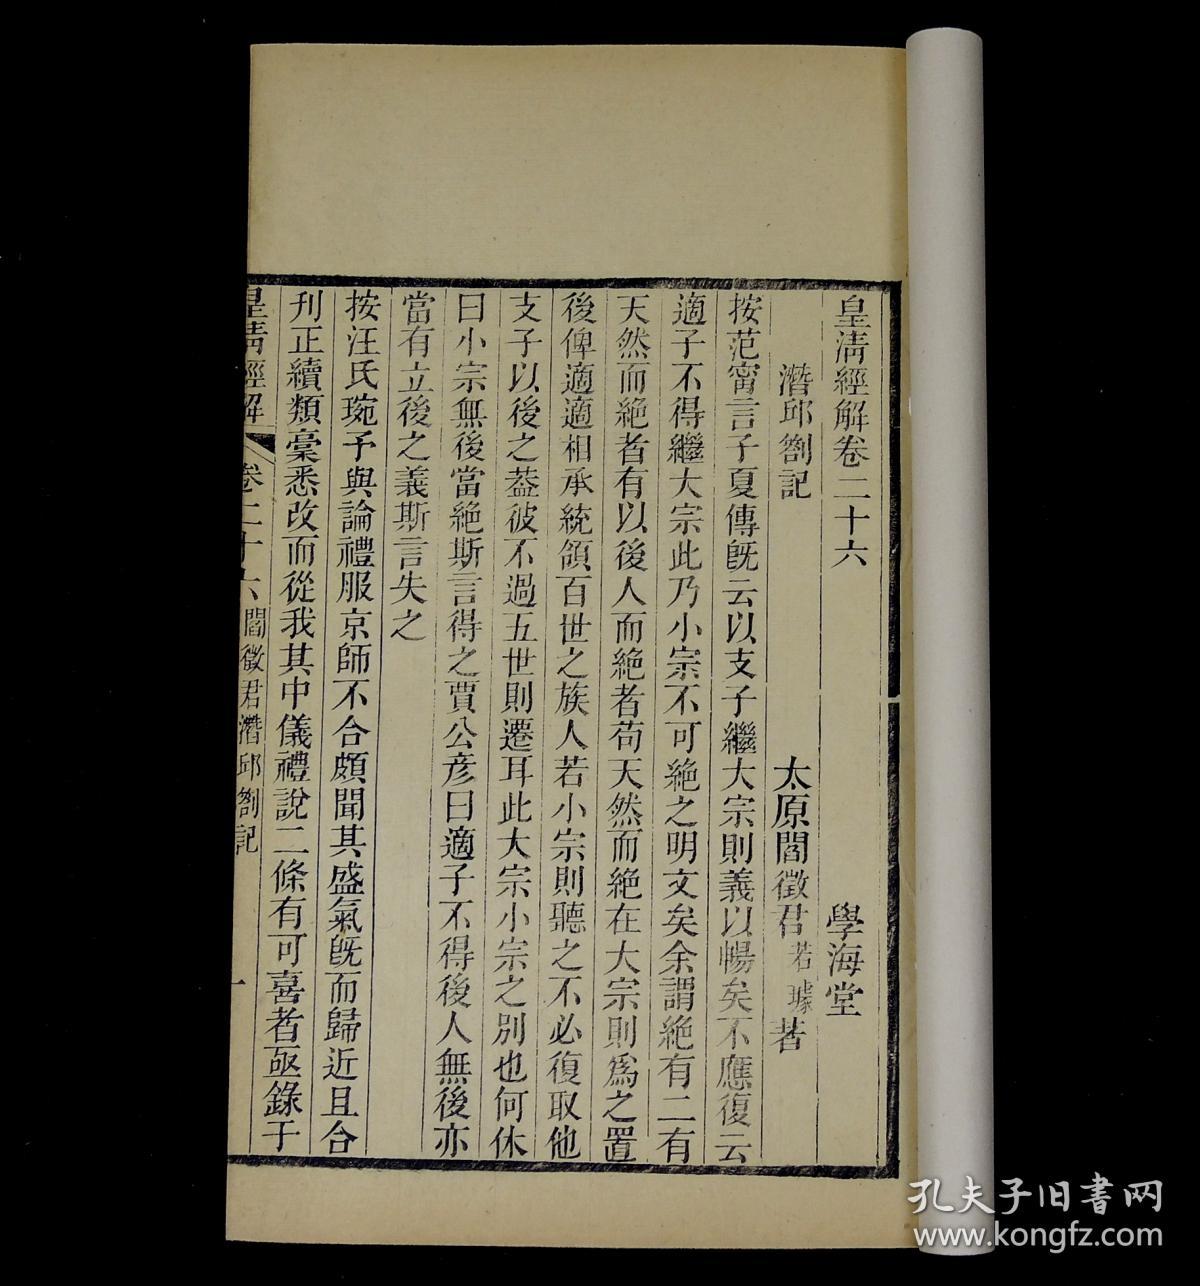 皇清經解卷二十六 學海堂
潛邱劄記 太原閻徵君若璩著
按范甯言子夏傳旣云以支子繼大宗則義以暢矣不應復云
適子不得繼大宗此乃小宗不可絶之明文矣余謂絶有二有
天然而絶者有以後人而絶者苟天然而絶在大宗則爲之置
後俾適適相承統領百世之族人若小宗則聽之不必復取他
支子以後之葢彼不過五世則遷耳此大宗小宗之別也何休
曰小宗無後當絶斯言得之賈公彥曰適子不得後人無後亦
當有立後之義斯言失之
按汪氏琬予與論禮服京師不合頗聞其盛氣旣而歸近且合
刋正續類稾悉改而從我其中儀禮說二條有可喜者亟錄于
皇清經解 卷二十六 閻徵君潛邱劄記 一
孔夫子旧書网
www.kongfz.com